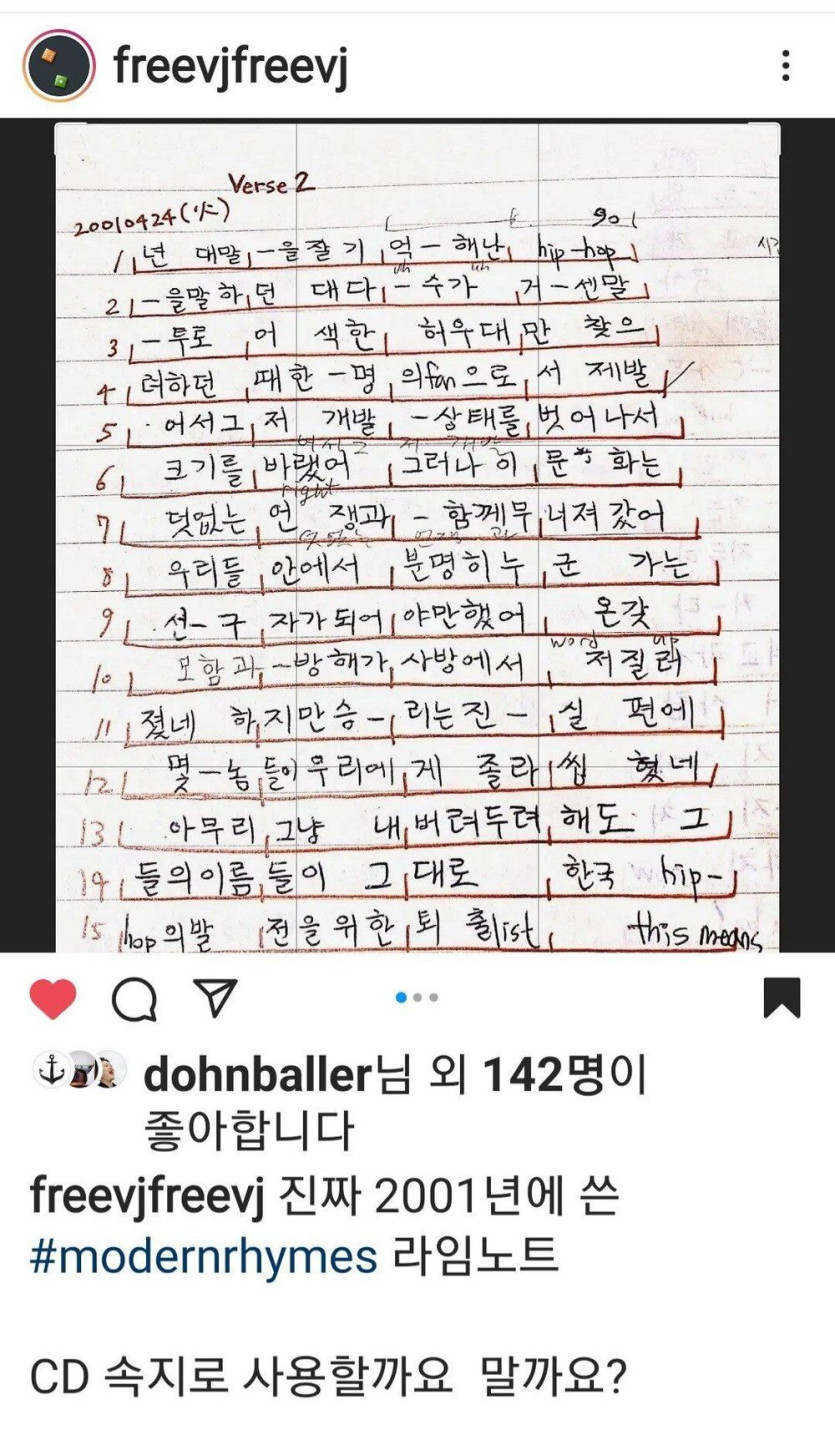 freevjfreevj
Verse 2
20010424(火)
90 (
1 년 대말 -을 잘 기 억 - 해난 hip-hop
시간
uh uh
2 -을말하던 대다 - 수가 거-센말
3 -투로 어 색한 허우대만 찾으
4 려하던 때한 -명 의fan으로 서 제발
5 어서그 저 개발 -상태를 벗어나서
어서그 저 개발
6 크기를 바랬어 그러나 이 문화는
right
7 덧없는 언 쟁과 - 함께무너져 갔어
덧없는 언쟁 과
8 우리들 안에서 분명히누군 가는
9 선-구 자가되어 야만했어 온갖
word up
10 모함과 -방해가 사방에서 저질러
11 졌네 하지만승- 리는진- 실 편에
12 몇-놈들이 우리에게 졸라 씹 혔네
13 아무리 그냥 내버려두려 해도 그
14 들의이름들이 그대로 한국 hip-
15 hop의발 전을위한 퇴 출list this means
dohnballer님 외 142명이
좋아합니다
freevjfreevj 진짜 2001년에 쓴
#modernrhymes 라임노트
CD 속지로 사용할까요 말까요?